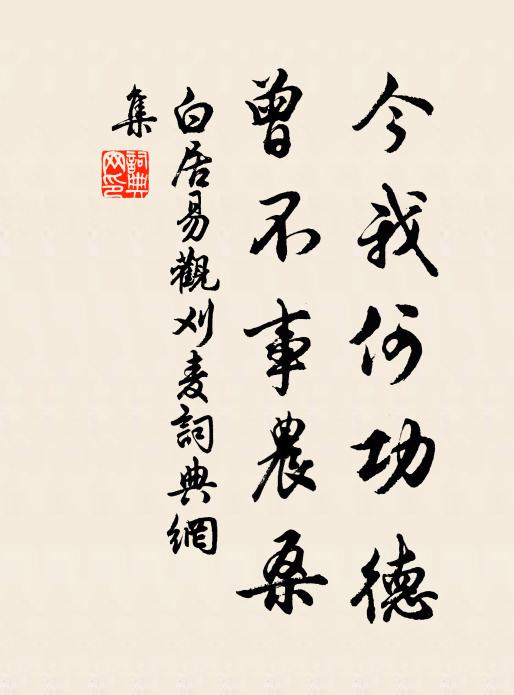 今我何功德
曾不事農桑
白居易觀刈麦詞典網
集
詞典網印